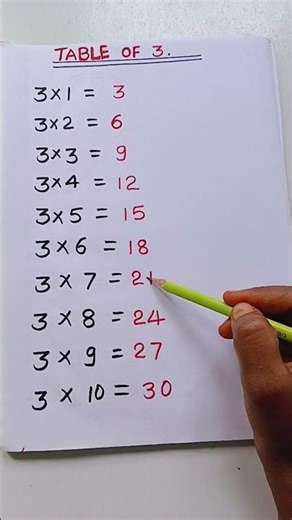 TABLE OF 3.
3×1 = 3
3×2 = 6
3×3 = 9
3×4 = 12
3×5 = 15
3×6 = 18
3×7 = 21
3×8 = 24
3×9 = 27
3×10 = 30